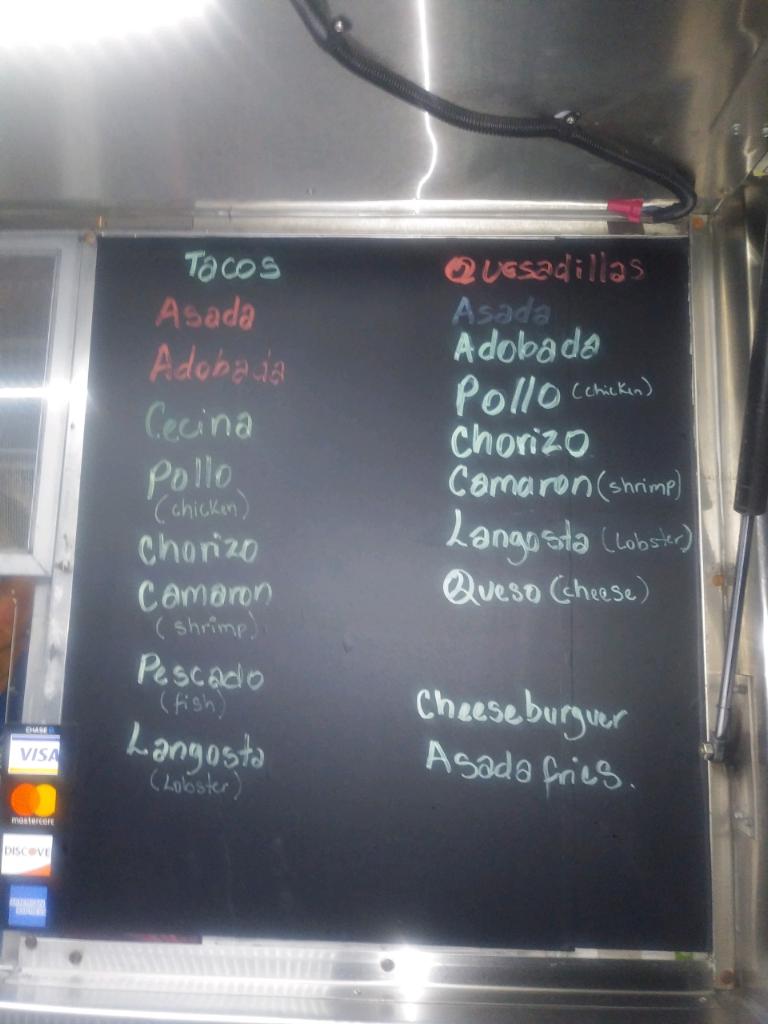 Tacos
Asada
Adobada
Cecina
Pollo
(chicken)
Chorizo
Camaron
(shrimp)
Pescado
(fish)
Langosta
(Lobster)
Quesadillas
Asada
Adobada
Pollo (chicken)
Chorizo
Camaron (shrimp)
Langosta (Lobster)
Queso (cheese)
Cheeseburguer
Asada fries.
CHASE
VISA
mastercard
DISCOVE
AMERICAN
EXPRESS